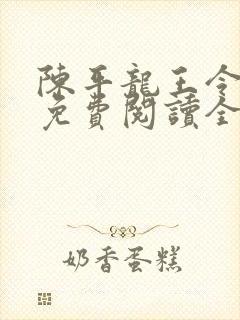 陳平龍王令
免費閱讀全
奶香蛋糕